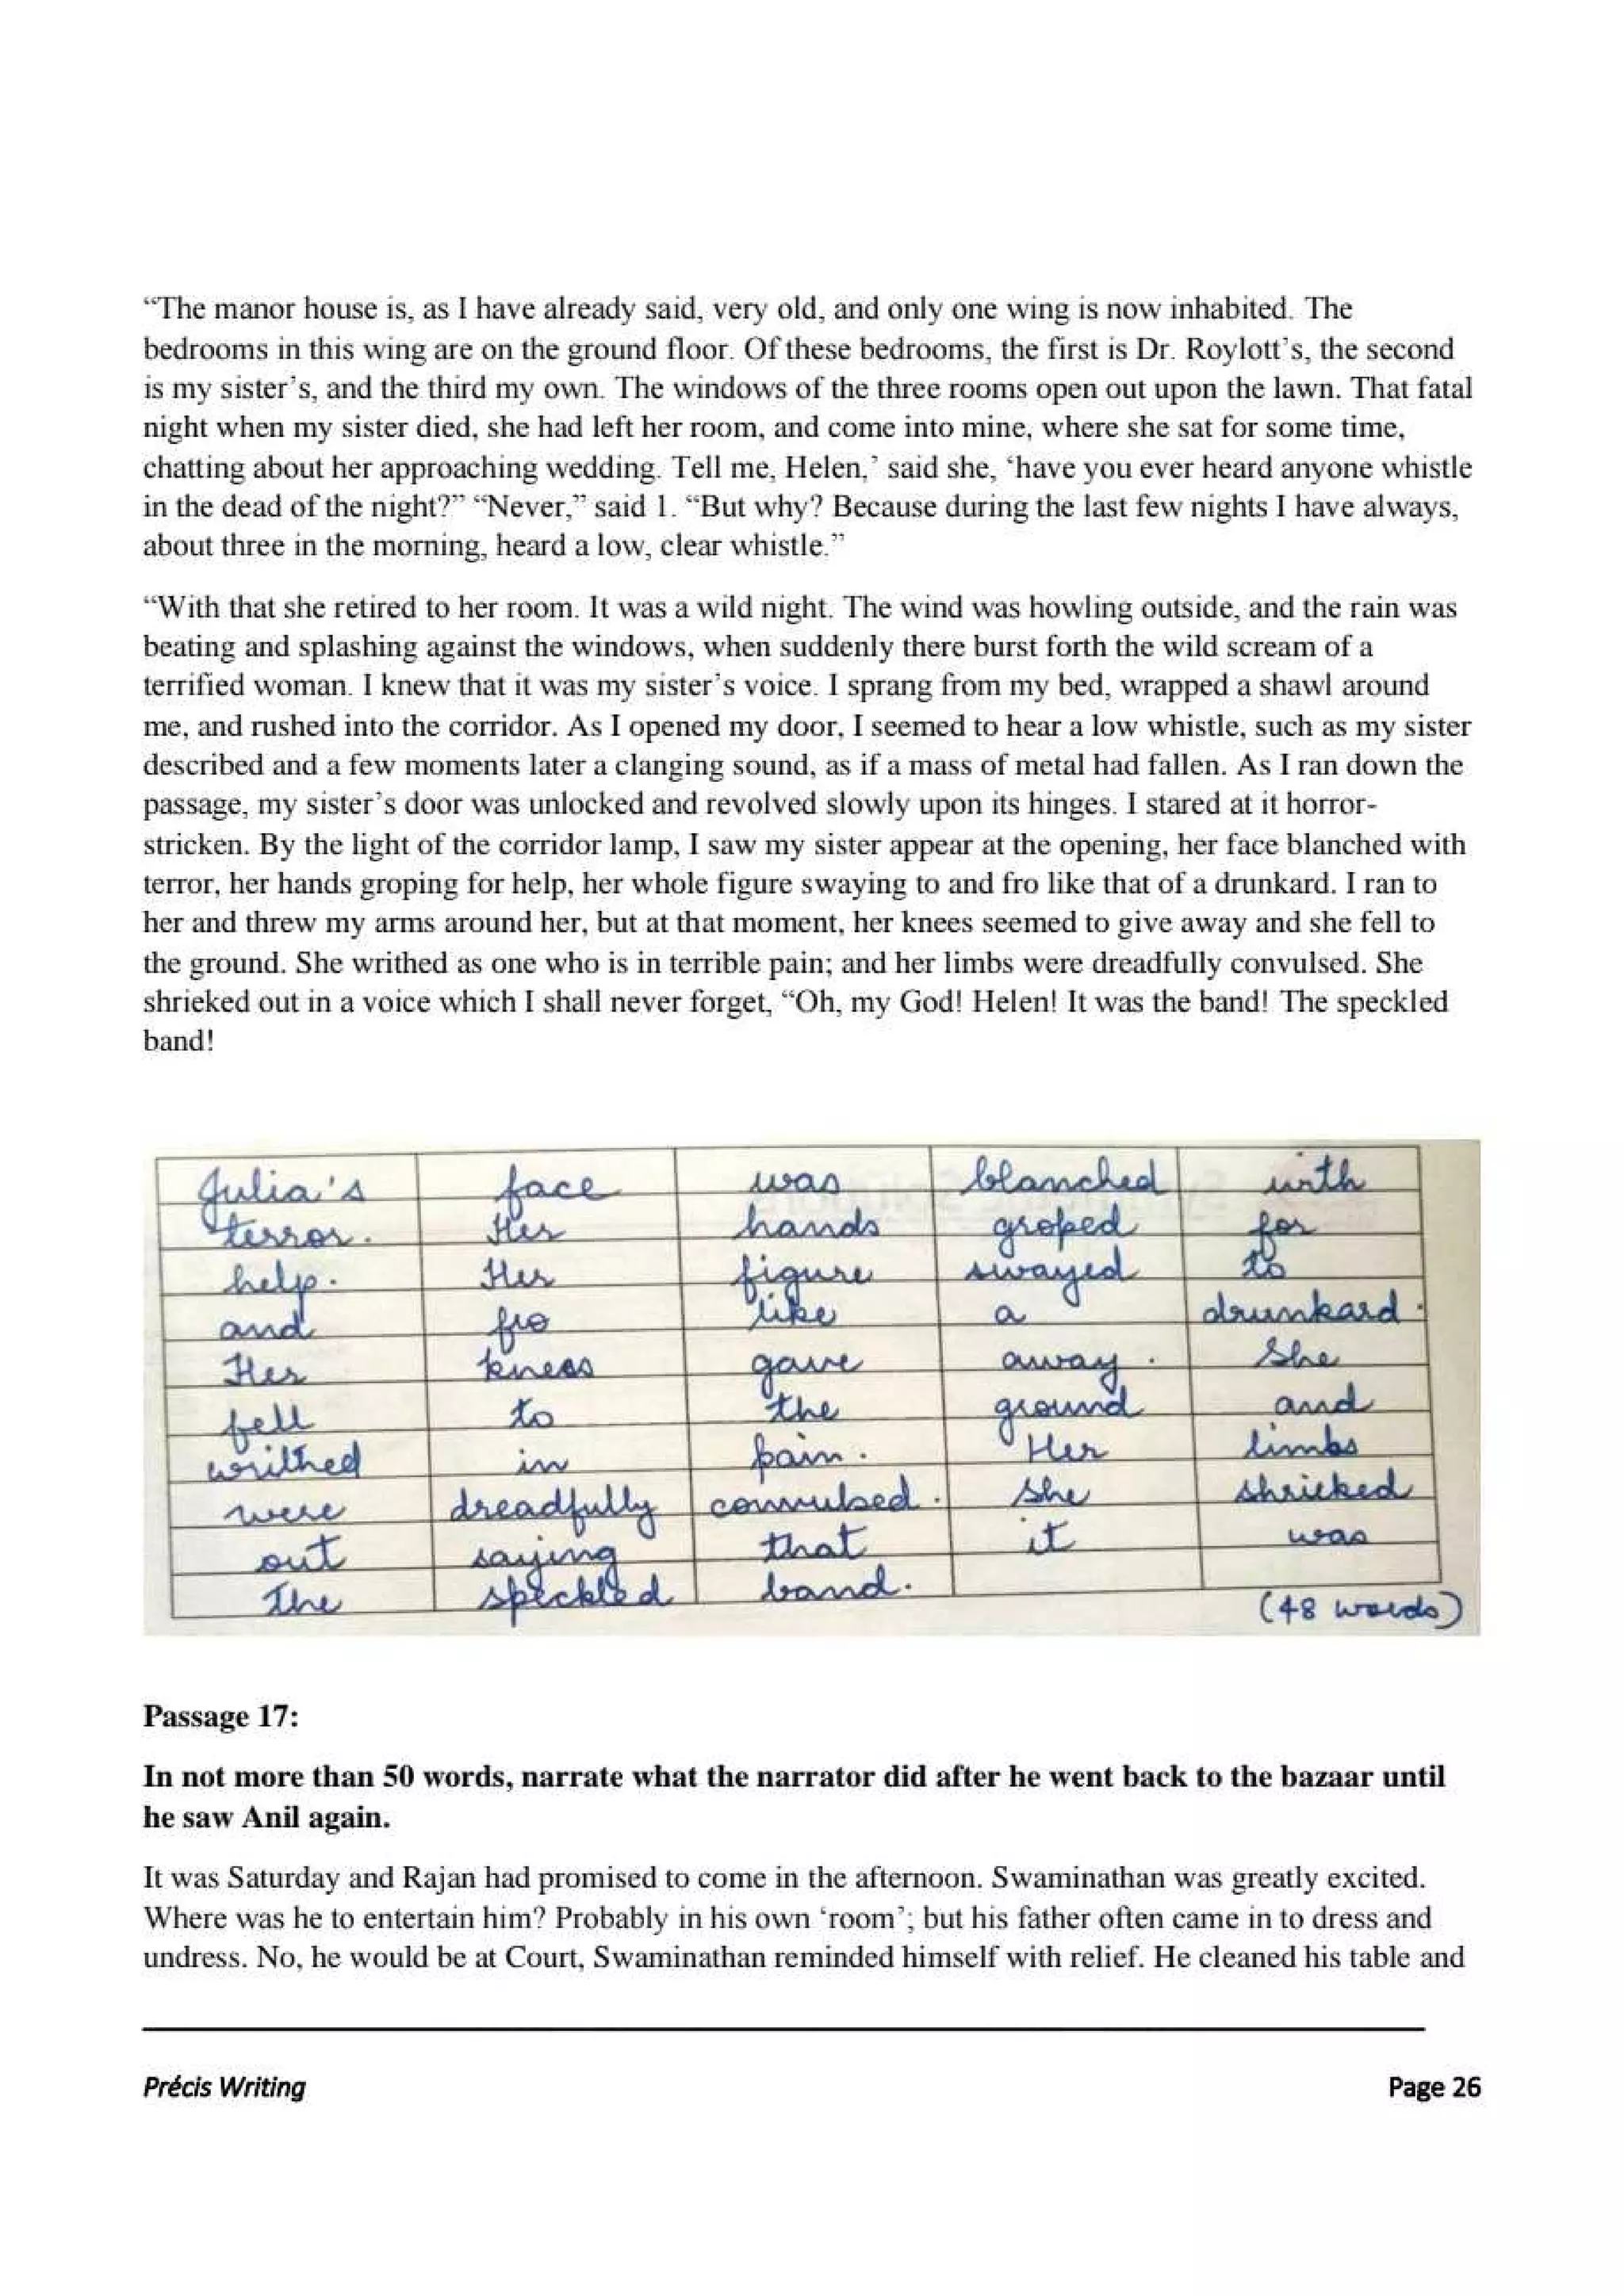 “The manor house is, as I have already said, very old, and only one wing is now inhabited. The
bedrooms in this wing are on the ground floor. Of these bedrooms, the first is Dr. Roylott’s, the second
is my sister’s, and the third my own. The windows of the three rooms open out upon the lawn. That fatal
night when my sister died, she had left her room, and come into mine, where she sat for some time,
chatting about her approaching wedding. Tell me, Helen,’ said she, ‘have you ever heard anyone whistle
in the dead of the night?” “Never,” said 1. “But why? Because during the last few nights I have always,
about three in the morning, heard a low, clear whistle.”
“With that she retired to her room. It was a wild night. The wind was howling outside, and the rain was
beating and splashing against the windows, when suddenly there burst forth the wild scream of a
terrified woman. I knew that it was my sister’s voice. I sprang from my bed, wrapped a shawl around
me, and rushed into the corridor. As I opened my door, I seemed to hear a low whistle, such as my sister
described and a few moments later a clanging sound, as if a mass of metal had fallen. As I ran down the
passage, my sister’s door was unlocked and revolved slowly upon its hinges. I stared at it horror-
stricken. By the light of the corridor lamp, I saw my sister appear at the opening, her face blanched with
terror, her hands groping for help, her whole figure swaying to and fro like that of a drunkard. I ran to
her and threw my arms around her, but at that moment, her knees seemed to give away and she fell to
the ground. She writhed as one who is in terrible pain; and her limbs were dreadfully convulsed. She
shrieked out in a voice which I shall never forget, “Oh, my God! Helen! It was the band! The speckled
band!
Julia's face was blanched with
terror. Her hands groped for
help. Her figure swayed to
and fro like a drunkard.
Her knees gave away. She
fell to the ground and
writhed in pain. Her limbs
were dreadfully convulsed. She shrieked
out saying that it was
the speckled band.
(48 words)
Passage 17:
In not more than 50 words, narrate what the narrator did after he went back to the bazaar until
he saw Anil again.
It was Saturday and Rajan had promised to come in the afternoon. Swaminathan was greatly excited.
Where was he to entertain him? Probably in his own ‘room’; but his father often came in to dress and
undress. No, he would be at Court, Swaminathan reminded himself with relief. He cleaned his table and
Précis Writing Page 26